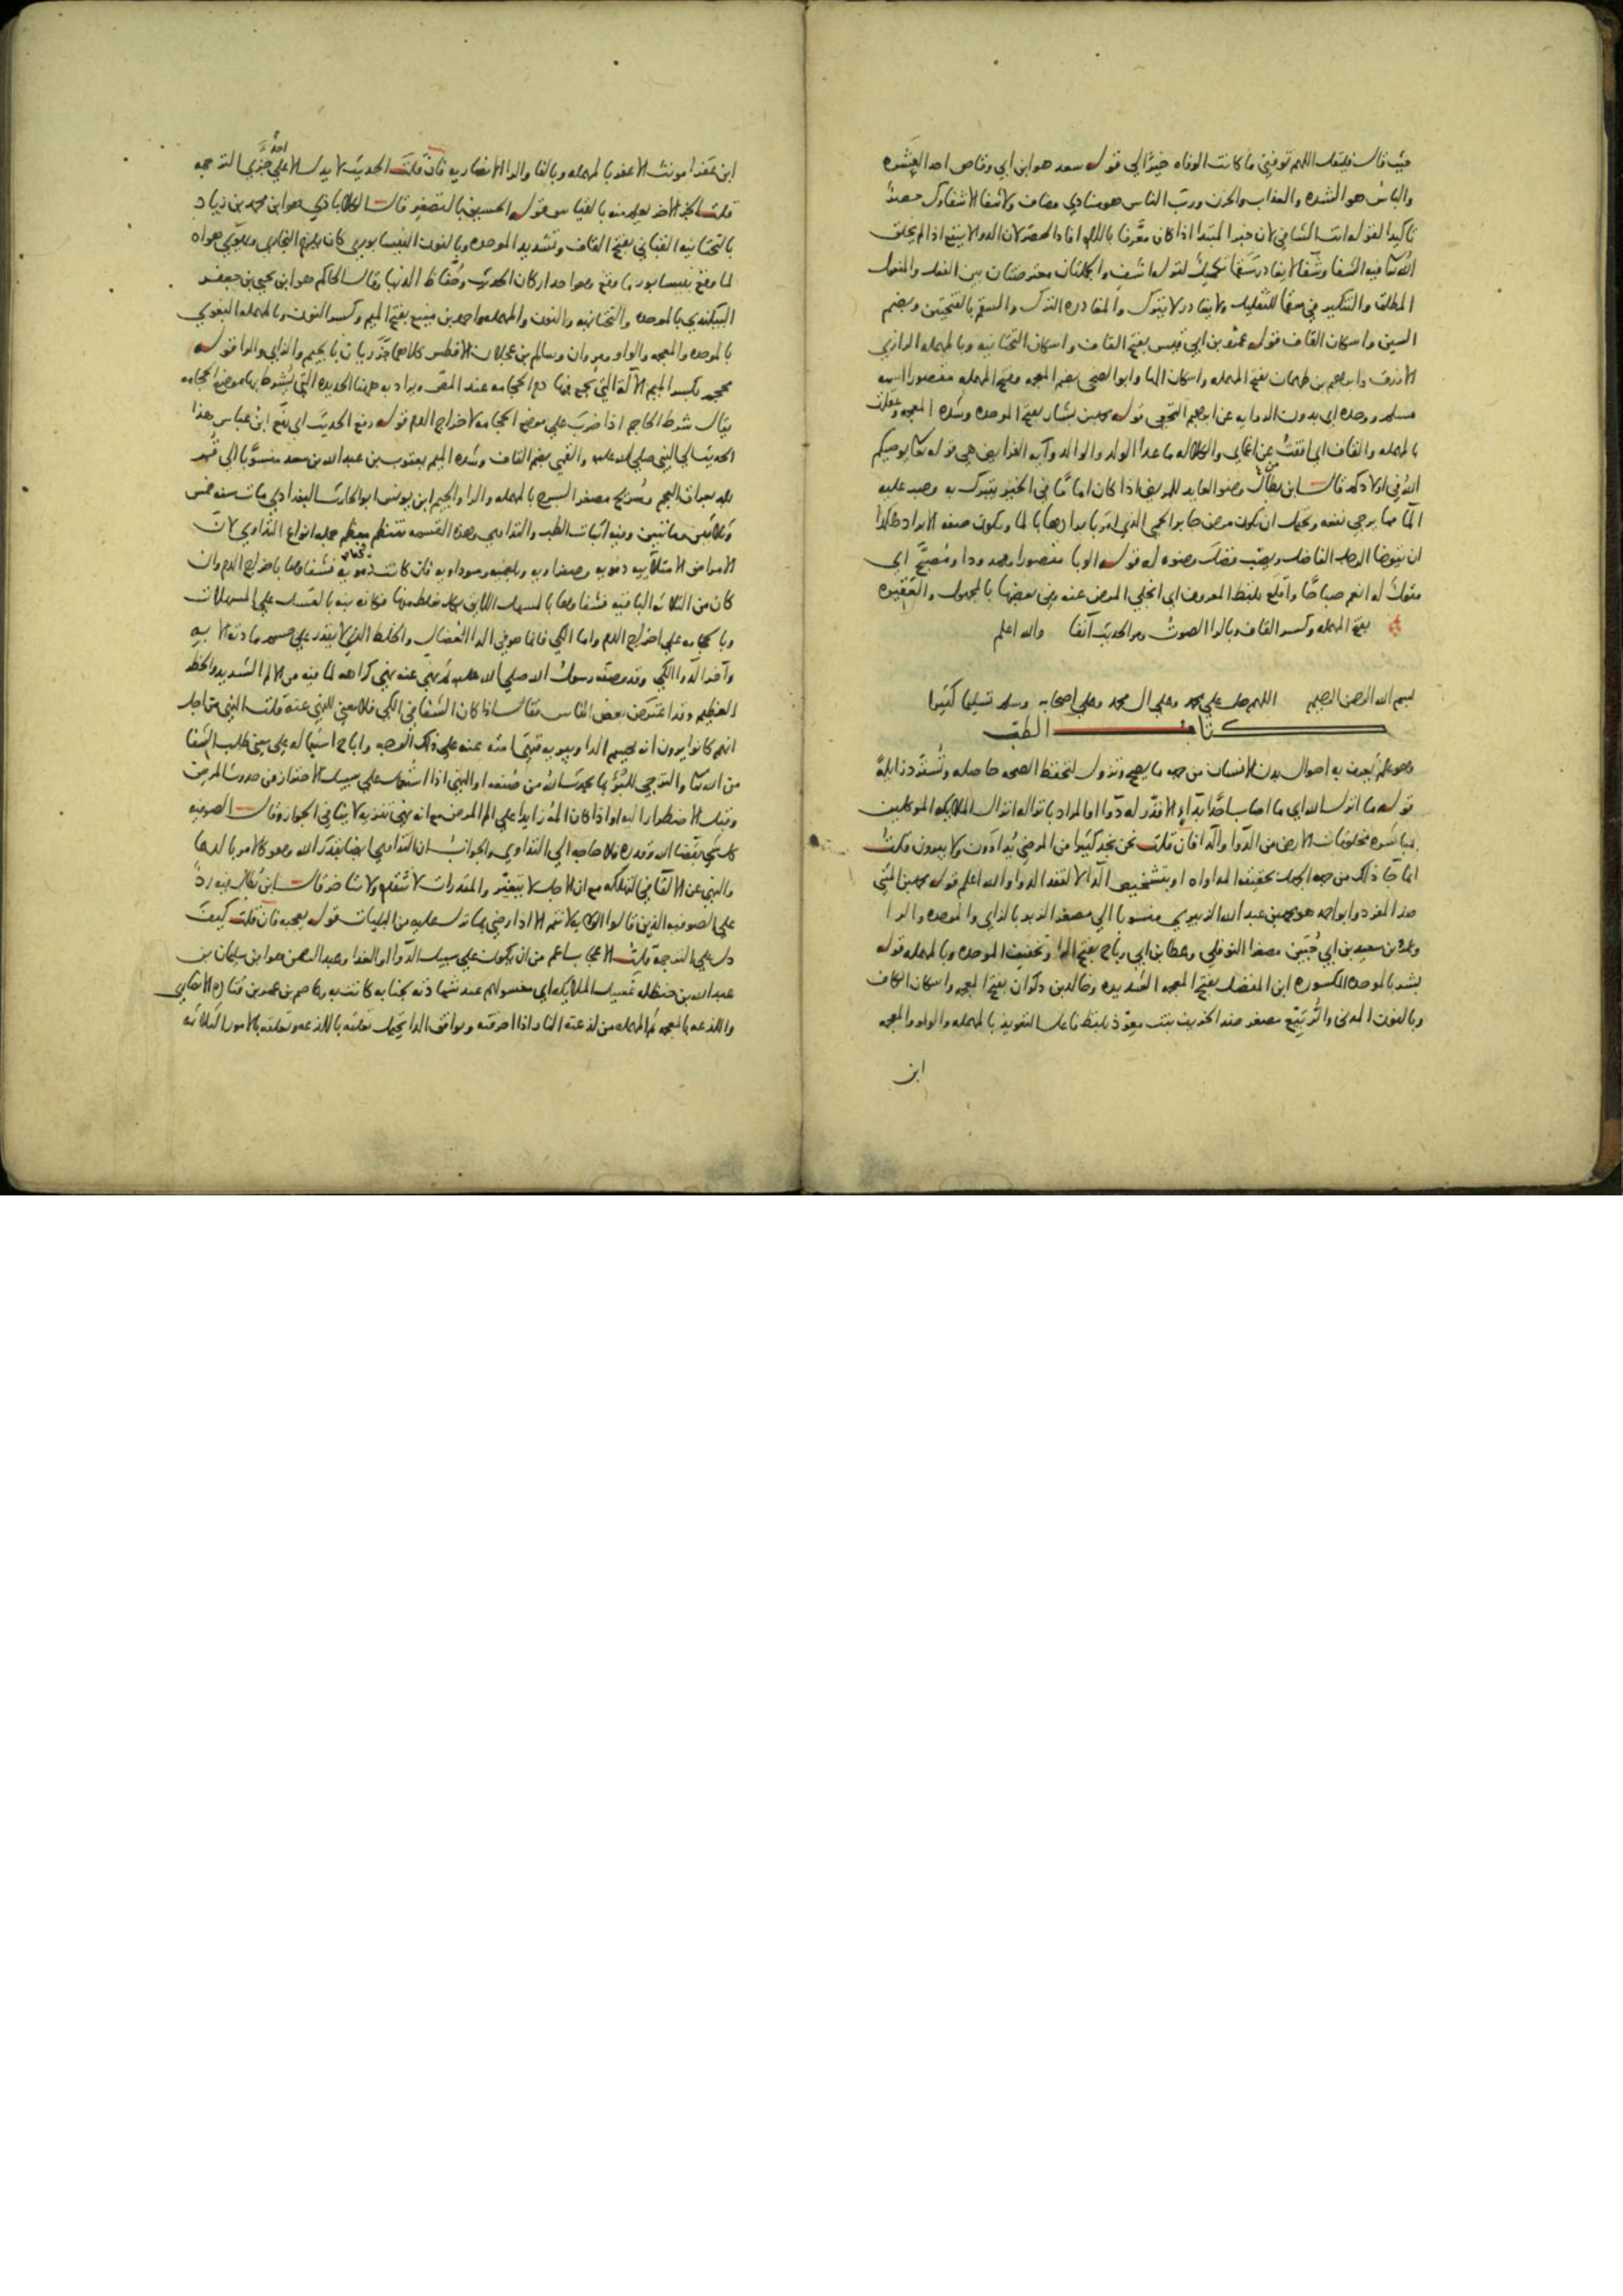 فيه قال فليقل اللهم توفني ما كانت الوفاه خيرا لي قوله سعد هو ابن ابي وقاص احد العشره
والباس هو الشده والعذاب والحزن ورب الناس هو منادي مضاف ولا شفا الا شفاوك حصرٌ
تاكيدا لقوله انت الشافي لان خبر المبتدا اذا كان معرفا باللام افاد الحصر لان الدوا لا ينفع اذا لم يخلق
الله تعالى فيه الشفا وشفا لا يغادر سقما تكميلٌ لقوله اشف والجملتان معترضتان بين الفعل والمفعول
المطلق والتنكير في سقما للتقليل ولا يغادر لا يترك والمغادره الترك والسقم بالفتحتين وبضم
السين واسكان القاف قوله عمرو بن ابي قيس بفتح القاف واسكان التحتانيه وبالمهمله الرازي
الازرق وابراهيم بن طهمان بفتح المهمله واسكان الها وابو الضحى بضم المعجمه وفتح المهمله مقصورا اسمه
مسلم ووحده اي بدون الروايه عن ابراهيم النخعي قوله محمد بن بشار بفتح الموحده وشده المعجمه وعقلت
بالمهمله والقاف اي افقت من اغمائي والكلاله ما عدا الولد والوالد وآيه الفرايض هي قوله تعالى يوصيكم
الله في اولادكم قال ابن بطال وضو العايد للمريض اذا كان اماما في الخير يتبرك به وصبه عليه
الما مما يرجى نفعه ويحتمل ان يكون مرض جابر الحمى الذي امر بابرادها بالما ويكون صفه الابراد هكذا
ان يتوضا الرجل الفاضل ويصب فضل وضوه له قوله الوبا مقصورا وممدودا ومصبح اي
مقول له انعم صباحا واقلع بلفظ المعروف اي انجلى المرض عنه وفي بعضها بالمجهول والعقيره
بفتح المهمله وكسر القاف وبالرا الصوت ومر الحديث آنفا والله اعلم
بسم الله الرحمن الرحيم اللهم صل علي محمد وعلي ال محمد وعلي اصحابه وسلم تسليما كثيرا
كتاب الطب
وهو علم يعرف به احوال بدن الانسان من جهه ما يصح ويزول لتحفظ الصحه حاصله وتسترد زايله
قوله ما انزل الله اي ما اصاب احدا بداء الا قدر له دوا او المراد بانزاله انزال الملايكه الموكلين
بمباشره مخلوقات الارض من الدوا والدا فان قلت نحن نجد كثيرا من المرضى يداوون ولا يبرون قلت
انما جا ذلك من جهه الجهل بحقيقه المداواه او بتشخيص الدا لا لفقد الدوا والله اعلم قوله محمد بن المثنى
ضد المفرد وابو احمد هو محمد بن عبد الله الزبيري منسوبا الي مصغر الزبر بالزاي والموحده والرا
وعمر بن سعيد بن ابي حسين مصغرا النوفلي وعطا بن ابي رباح بفتح الرا وتخفيف الموحده وبالمهمله قوله
بشر بالموحده المكسوره ابن المفضل بفتح المعجمه الشديده وخالد بن ذكوان بفتح المعجمه واسكان الكاف
وبالنون المدني والربيع مصغر ضد الخريف بنت معوذ بلفظ فاعل التعويذ بالمهمله والواو والمعجمه
ابن
ابن عفرا مونث الاعفر بالمهمله وبالفا والرا الانصاريه فان قلت الحديث لا يدل الا علي احد جزي الترجمه
قلت الجز الاخر يعلم منه بالقياس قوله الحسين بالتصغير قال الكلاباذي هو ابن محمد بن زياد
بالتحتانيه القباني بفتح القاف وتشديد الموحده وبالنون النيسابوري كان يلزم البخاري ويهوى هواه
لما وقع بنيسابور ما وقع وهو احد اركان الحديث وحفاظ الدنيا وقال الحاكم هو ابن يحيى بن جعفر
البيكندي بالموحده والتحتانيه والنون والمهمله واحمد بن منيع بفتح الميم وكسر النون وبالمهمله البغوي
بالموحده والمعجمه والواو ومروان وسالم بن عجلان الافطس كلاهما جزريان بالجيم والزاي والرا قوله
محجم بكسر الميم الالة التي يجمع فيها دم الحجامه عند المص ويراد به ههنا الحديده التي يشرط بها موضع الحجامه
يقال شرط الحاجم اذا ضرب علي موضع الحجامه لاخراج الدم قوله رفع الحديث اي رفع ابن عباس هذا
الحديث الي النبي صلى الله عليه والقمي بضم القاف وشده الميم يعقوب بن عبد الله بن سعد منسوبا الي قم
بلد بعراق العجم وسريج مصغر السرج بالمهمله والرا والجيم ابن يونس ابو الحارث البغدادي مات سنه خمس
وثلاثين ومائتين وفيه اثبات الطب والتداوي وهذه القسمه تنتظم معظم جمله انواع التداوي لان
الامراض الامتلائيه دمويه وصفراويه وبلغميه وسوداويه فان كانت دمويه فشفاوها باخراج الدم وان
كان من الثلاثه الباقيه فشفاوها بالمسهل اللايق بكل خلط منها فكانه نبه بالعسل علي المسهلات
وبالحجامه علي اخراج الدم واما الكي فانما هو في الدا العضال والخلط الذي لا يقدر علي حسم مادته الا به
وآخر الدوا الكي وقد وصفه رسول الله صلي الله عليه ثم نهى عنه نهي كراهه لما فيه من الالم الشديد والخطر
العظيم وقد اعترض بعض الناس فقال اذا كان الشفا في الكي فلا معني للنهي عنه قلت النهي من اجل
انهم كانوا يرون انه يحسم الدا ويبريه فنهى امته عنه علي ذلك الوجه واباح استعماله علي معني طلب الشفا
من الله تعالى والترجي للبرء بما يحدث الله من صنعه او النهي اذا استعمل علي سبيل الاحتراز من حدوث المرض
وقبل الاضطرار اليه او اذا كان المه زايدا علي الم المرض مع انه نهي تنزيه لا ينافي الجواز وقال الصوفيه
كل شي بقضا الله وقدره فلا حاجه الي التداوي والجواب ان التداوي ايضا بقدر الله وهو كالامر بالدعا
والنهي عن الالقا في التهلكه مع ان الاجل لا يتغير والمقدرات لا تتقدم ولا تتاخر قال ابن بطال فيه رد
علي الصوفيه الذين قالوا الولايه لا تتم الا اذا رضي بما نزل عليه من البليات قوله يعجبه فان قلت كيف
دل علي الترجمة قلت الاعجاب اعم من ان يكون علي سبيل الدوا او الغذا وعبد الرحمن هو ابن سليمان بن
عبد الله بن حنظله غسيل الملايكه اي مغسولهم عند شهادته بجنابه كانت به وعاصم بن عمر بن قتاده الانصاري
واللذعه بالمعجمه ثم المهمله من لذعته النار اذا احرقته ويوافق الدا يحتمل تعلقه باللذعه وتعلقه بالامور الثلاثه